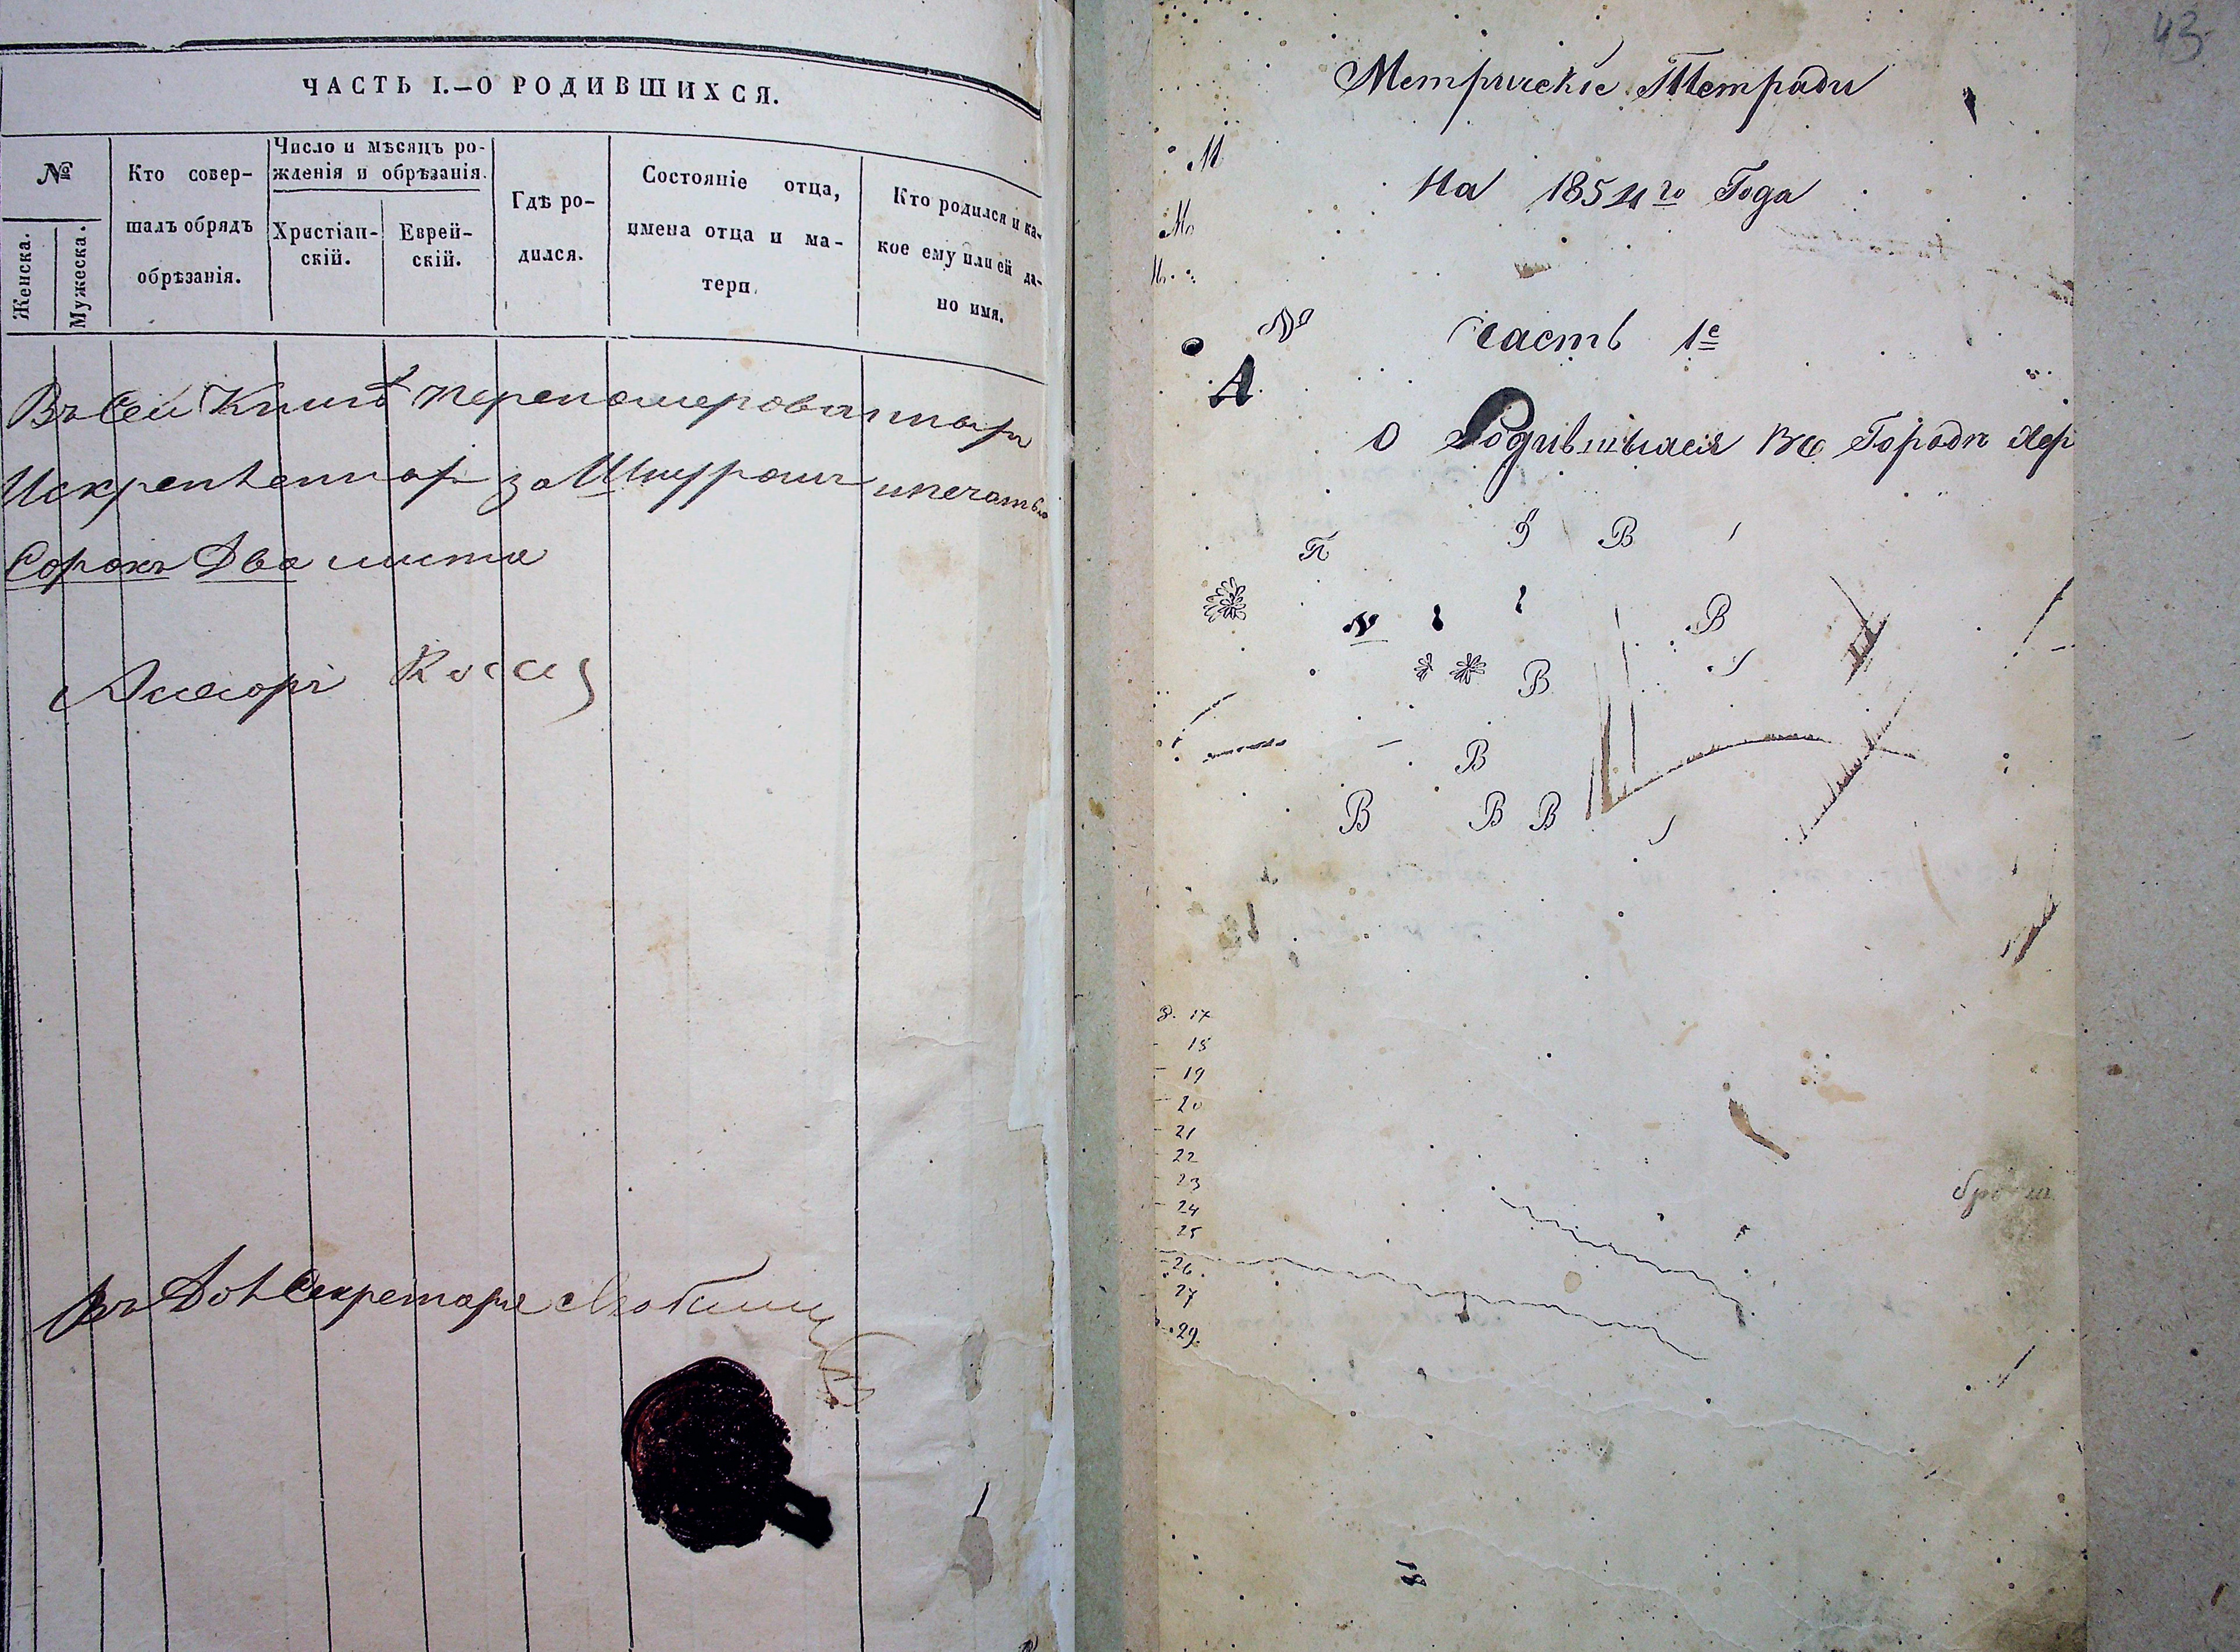 ЧАСТЬ I.—О РОДИВШИХСЯ.
№
Женска.
Мужеска.
Кто совер-
шалъ обрядъ
обрѣзанія.
Число и мѣсяцъ ро-
жденія и обрѣзанія.
Христіан-
скій.
Еврей-
скій.
Гдѣ ро-
дился.
Состояніе отца,
имена отца и ма-
тери.
Кто родился и ка-
кое ему или ей да-
но имя.
Въ Сей Книгѣ перенумерованныхъ
Искрепленныхъ за Шнуромъ ипечатью
Сорокъ Два листа
Въ Дол Секретаря
43
Метрическіе Тетради
М
На 1854го Года
№
Часть 1е
А
О Родившыхся Во Городѣ Хер
П В
В
В
В
В В В
8. 17
18
19
20
21
22
23
24
25
26
27
29
18